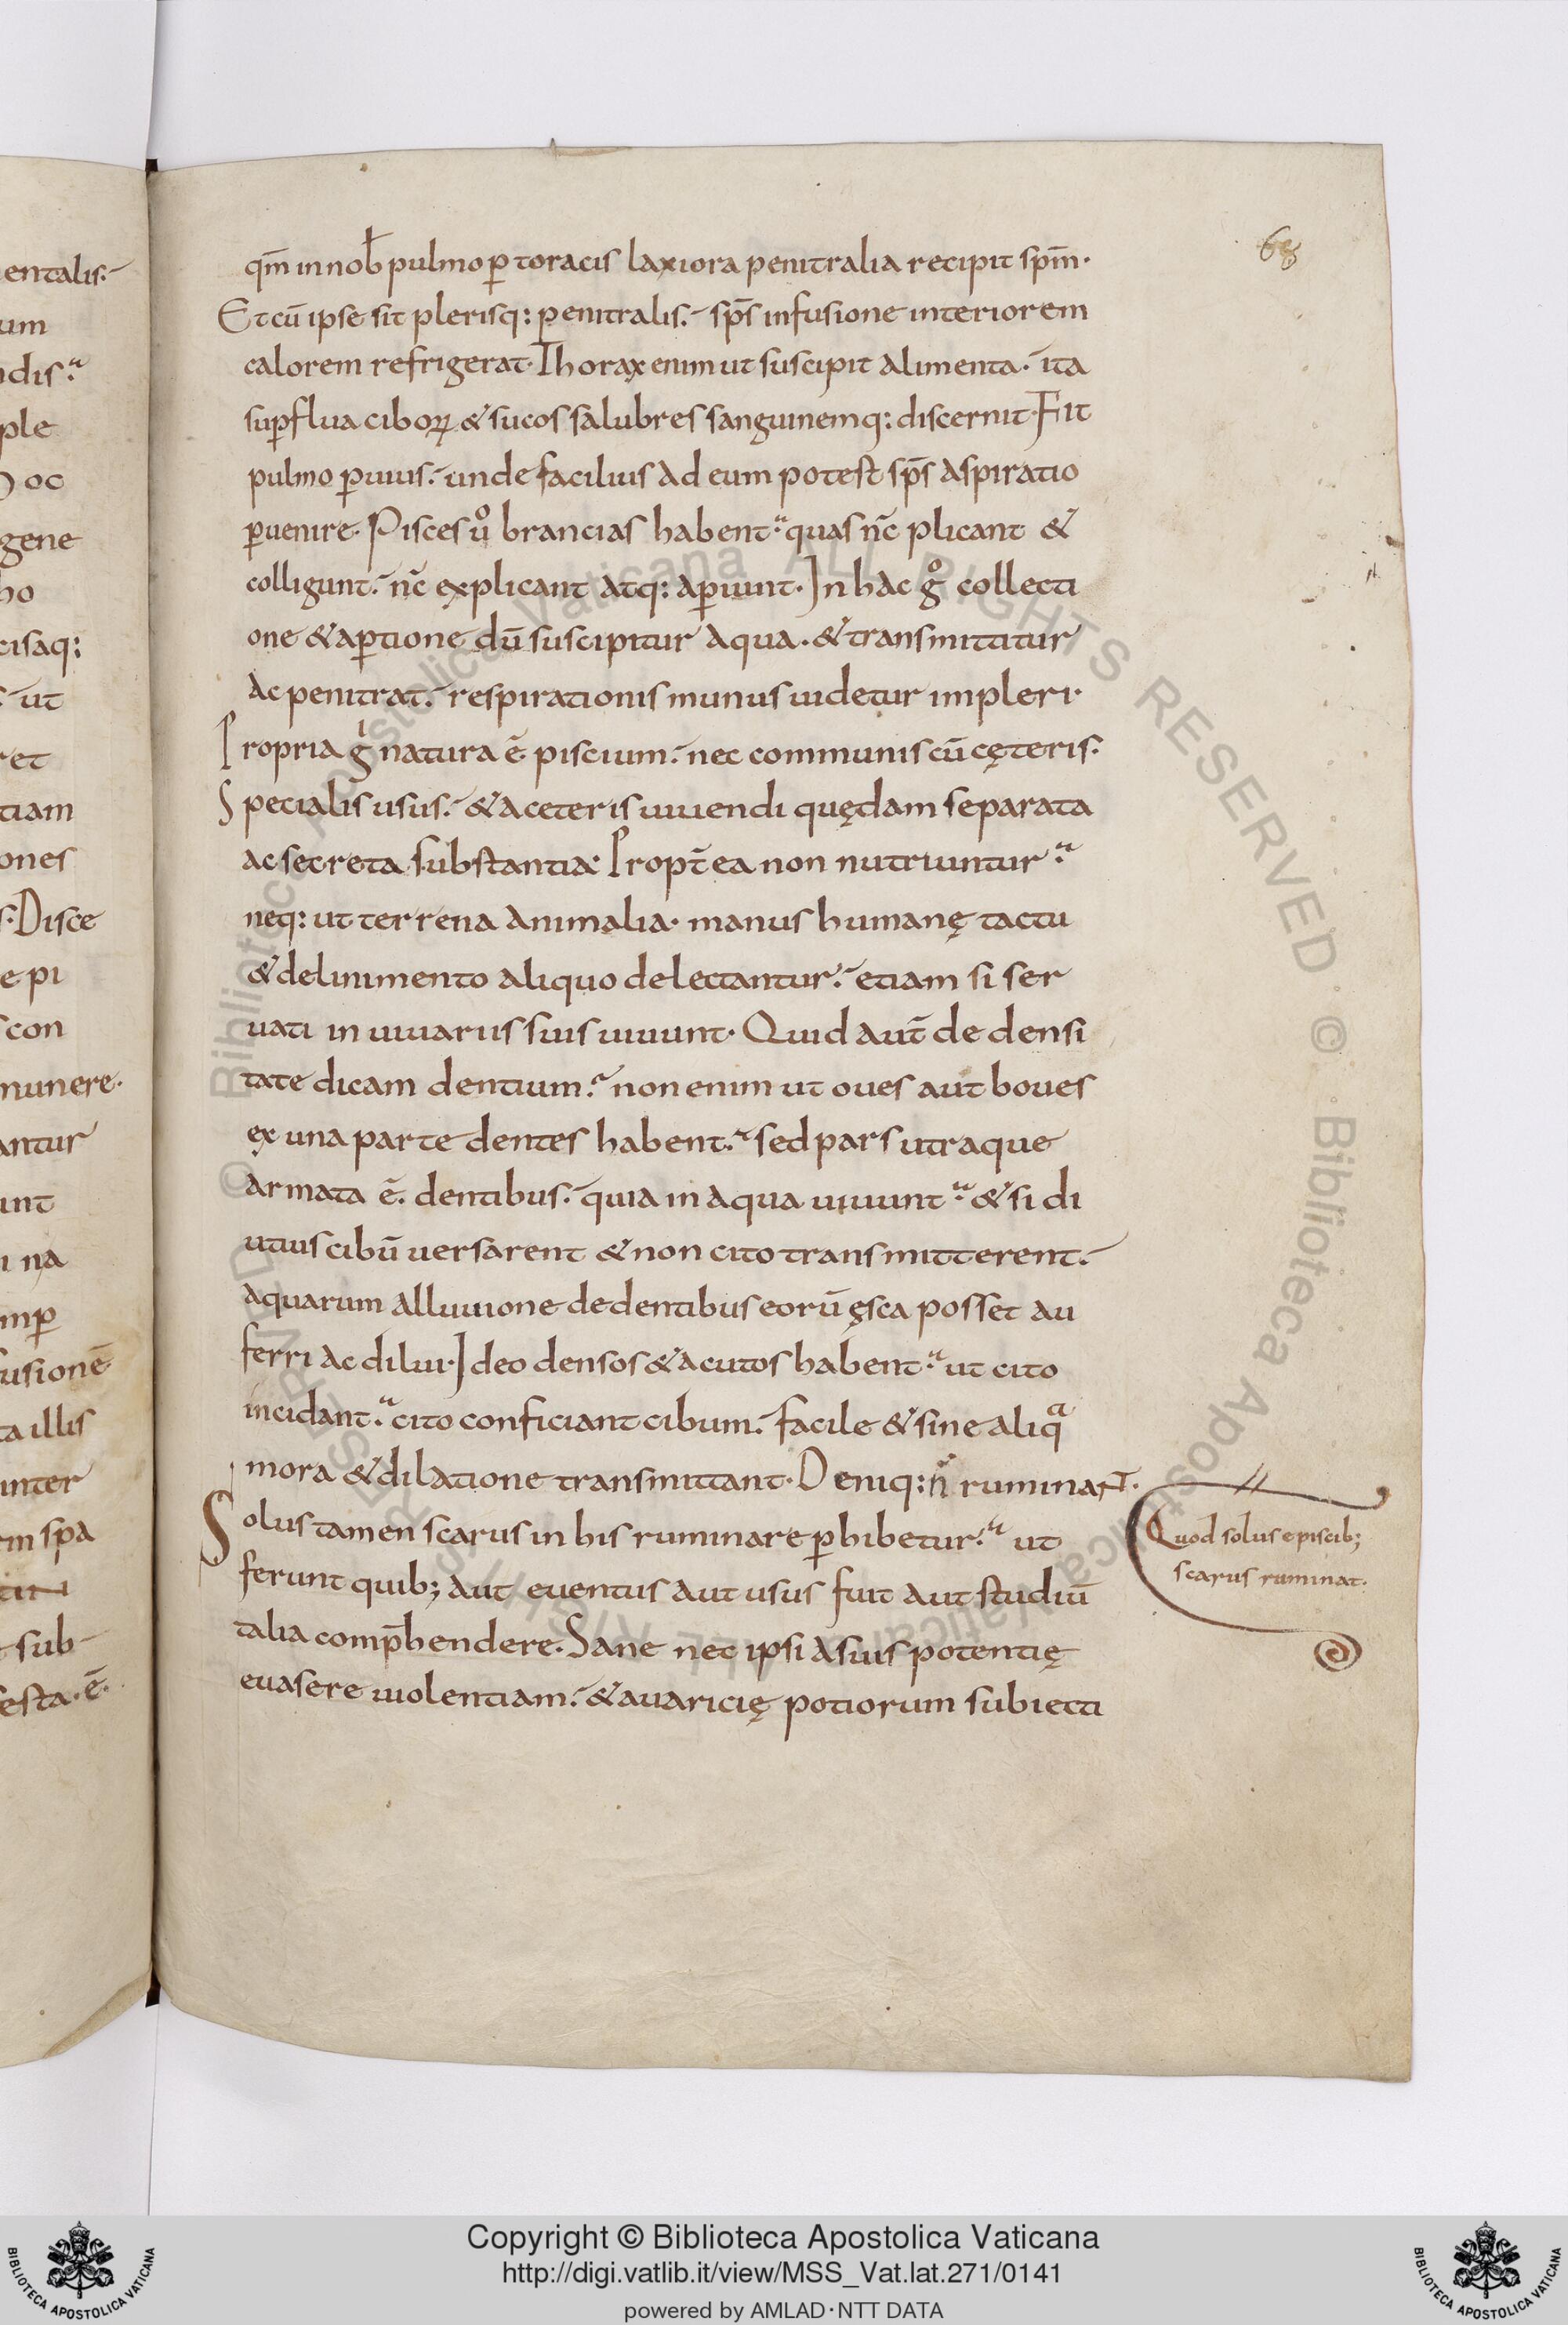 68
qm̄ in nob̄ pulmo ꝑ toracis laxiora penitralia recipit sp̄m·
Et cū ipse sit plerisq: penitralis. sp̄s infusione interiorem
calorem refrigerat· Thorax enim ut suscipit alimenta· ita
suꝑflua ciboꝝ & sucos salubres sanguinemq: discernit· Fit
pulmo ꝑuius. unde facilius ad eum potest sp̄s aspiratio
ꝑuenire· Pisces uͦ brancias habent. quas nc̄ plicant &
colligunt. nc̄ explicant atq: aꝑiunt· In hac gͦ collecti
one & aꝑtione dū suscipitur aqua· & transmittitur
ac penitrat. respirationis munus uidetur impleri·
Propria gͥ natura ē piscium. nec communis cū cęteris.
Specialis usus. & a ceteris uiuendi quędam separata
ac secreta substantia· Propt̄ea non nutriuntur.
neq: ut terrena animalia· manus humanę tactu
& delinimento aliquo delectantur. etiam si ser
uati in uiuariis suis uiuunt· Quid aut̄ de densi
tate dicam dentium. non enim ut oues aut boues
ex una parte dentes habent. sed pars utraque
armata ē. dentibus. quia in aqua uiuunt. & si di
utius cibū uersarent & non cito transmitterent.
aquarum alluuione de dentibus eorū ęsca posset au
ferri ac dilui· Ideo densos & acutos habent. ut cito
incidant. cito conficiant cibum. facile & sine aliqͣ
mora & dilatione transmittant· Deniq: n̄ ruminant.
Solus tamen scarus in his ruminare ꝑhibetur. ut
ferunt quib; aut euentus aut usus fuit aut studiū
talia comp̄hendere· Sane nec ipsi a suis potentię
euasere uiolentiam. & auaricię potiorum subiecti
Quod solus e piscib;
scarus ruminat.
entalis.
um
ndis.
ple
oc
gene
ho
cisaq:
ut
ret
tiam
ones
s· Disce
e pi
scon
munere·
antur
unt
na
mꝑ
fusionē
ta illis
inter
rm spa
sub
festa· ē·
© Biblioteca Apostolica Vaticana ALL RIGHTS RESERVED © Biblioteca Apostolica Vaticana ALL RIGHTS RESERVED
BIBLIOTECA APOSTOLICA VATICANA
Copyright © Biblioteca Apostolica Vaticana
http://digi.vatlib.it/view/MSS_Vat.lat.271/0141
powered by AMLAD·NTT DATA
BIBLIOTECA APOSTOLICA VATICANA